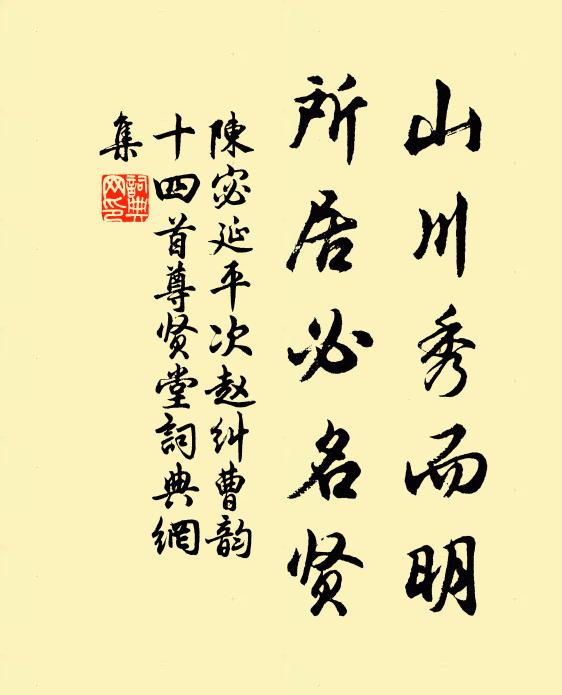 山川秀而明
所居必名贤
陳宓延平次赵糾曹韵
十四首尊贤堂詞典網
集
詞典
网印